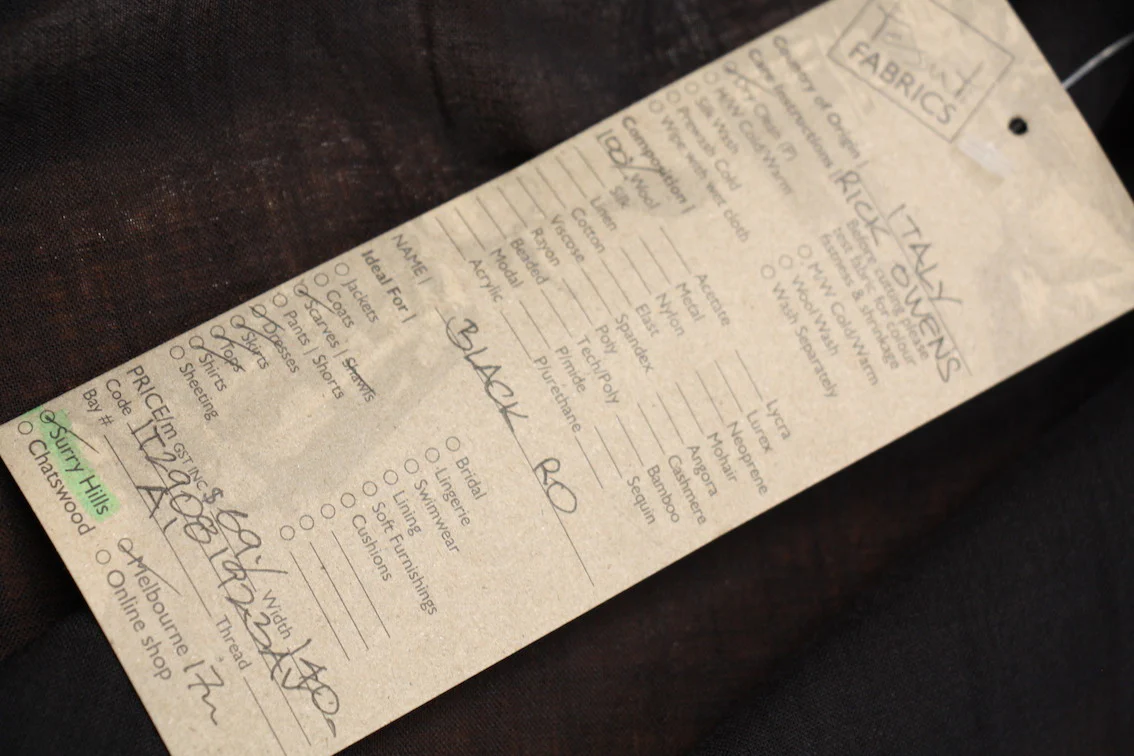 FABRICS
Country of Origin | ITALY
RICK OWENS
Care Instructions |
Before cutting please
test fabric for colour
fastness & shrinkage
Dry Clean (P)
H&W Cold/Warm
Silk Wash
Prewash Cold
Wipe with wet cloth
M/W Cold/Warm
Wool Wash
Wash Separately
Composition |
100% Wool
Silk
Linen
Cotton
Viscose
Rayon
Beaded
Modal
Acrylic
Acetate
Metal
Nylon
Elast
Spandex
Poly
Tech/Poly
P/mide
P/urethane
Lycra
Lurex
Neoprene
Mohair
Angora
Cashmere
Bamboo
Sequin
NAME | BLACK RO
Ideal For |
Jackets
Coats
Scarves | Shawls
Pants | Shorts
Dresses
Skirts
Tops
Shirts
Sheeting
Bridal
Lingerie
Swimwear
Lining
Soft Furnishings
Cushions
PRICE/m GST INC $ 69 Width 140
Code
Bay # A Thread
Surry Hills
Chatswood
Melbourne 17m
Online shop